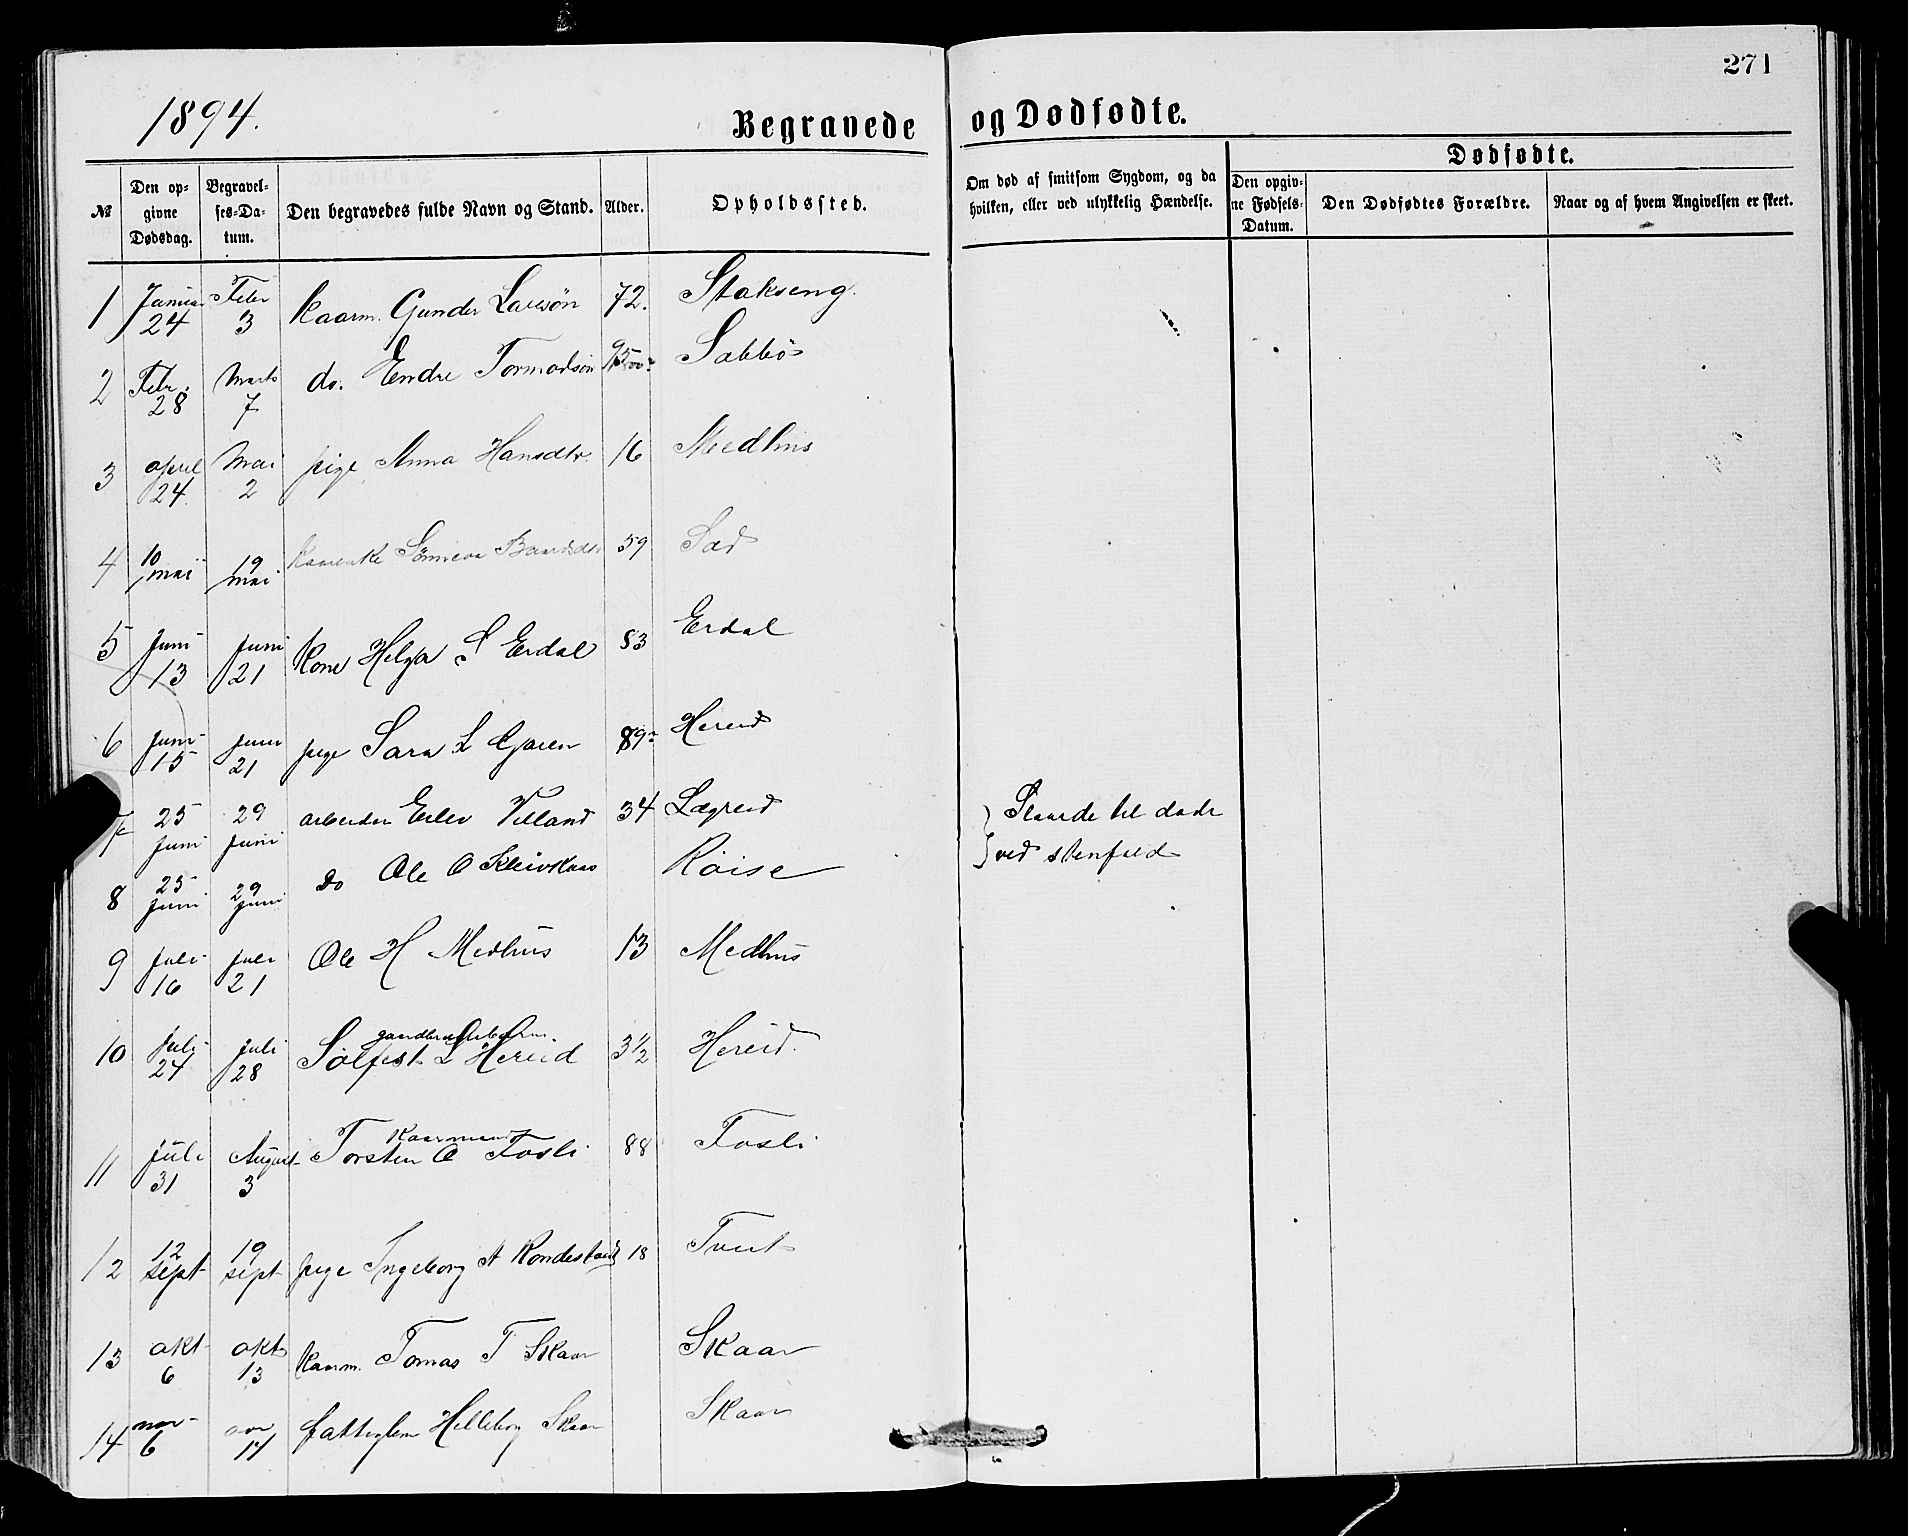 271
1894.
Begravede og Dødfødte.
№
Den opgivne Dødsdag.
Begravelses-Datum.
Den begravedes fulde Navn og Stand.
Alder.
Opholdssted.
Om død af smitsom Sygdom, og da hvilken, eller ved ulykkelig Hændelse.
Dødfødte.
Den opgivne Fødsels-Datum.
Den Dødfødtes Forældre.
Naar og af hvem Angivelsen er skeet.
1 Januar 24 Febr 3 Kaarm. Gunder Larsøn 72. Stakseng.
2 Febr. 28 Marts 7 do. Endre Tormodsøn 95 Sabbø
3 april 24 Mai 2 pige Anna Hansdtr. 16 Medhus
4 10 mai 19 mai Kaarenke 59 Sæd
5 Juni 13 Juni 21 Kone Helga S Erdal 83 Erdal
6 Juni 15 Juni 21 pige Sara L Garen 89 Hereid
7 25 Juni 29 Juni arbeider Erlev Villand 34 Lægreid
} Sloges til døde
8 25 Juni 29 Juni do Ole O Kleivkaas Röise
} ved stenfald
9 Juli 16 Juli 21 Ole H Medhus 13 Medhus
10 Juli 24 Juli 28 Sølfest L Hereid 3 1/2 Hereid.
11 Juli 31 August 3 Kaarmand Torsten O Fosli 88 Fosli
12 12 sept 19 sept pige Ingeborg A Rondestvedt 18 Tveit
13 okt 6 okt 13 Kaarm. Tomas T Skaar Skaar
14 nov 6 nov 14 fattiglem Helleborg Skaar Skaar